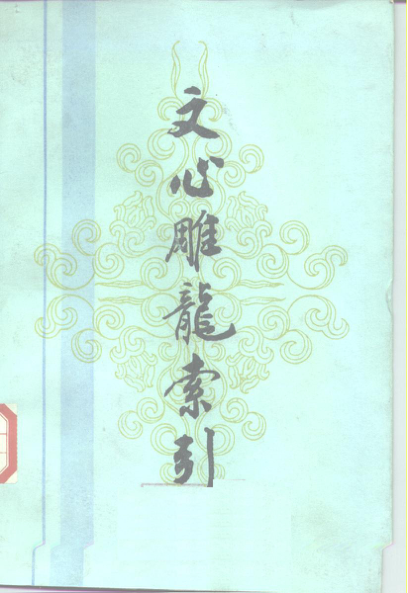 文心雕龍索引